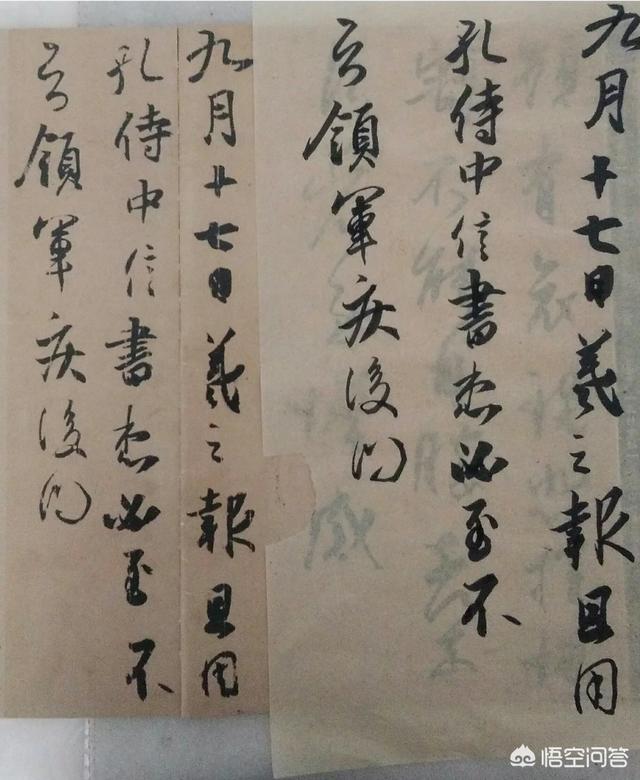 九月十七日羲之報且因
孔侍中信書想必至不
知領軍疾後問
九月廿七日羲之報且因
孔侍中信書想必至不
知領軍疾後問
悟空问答